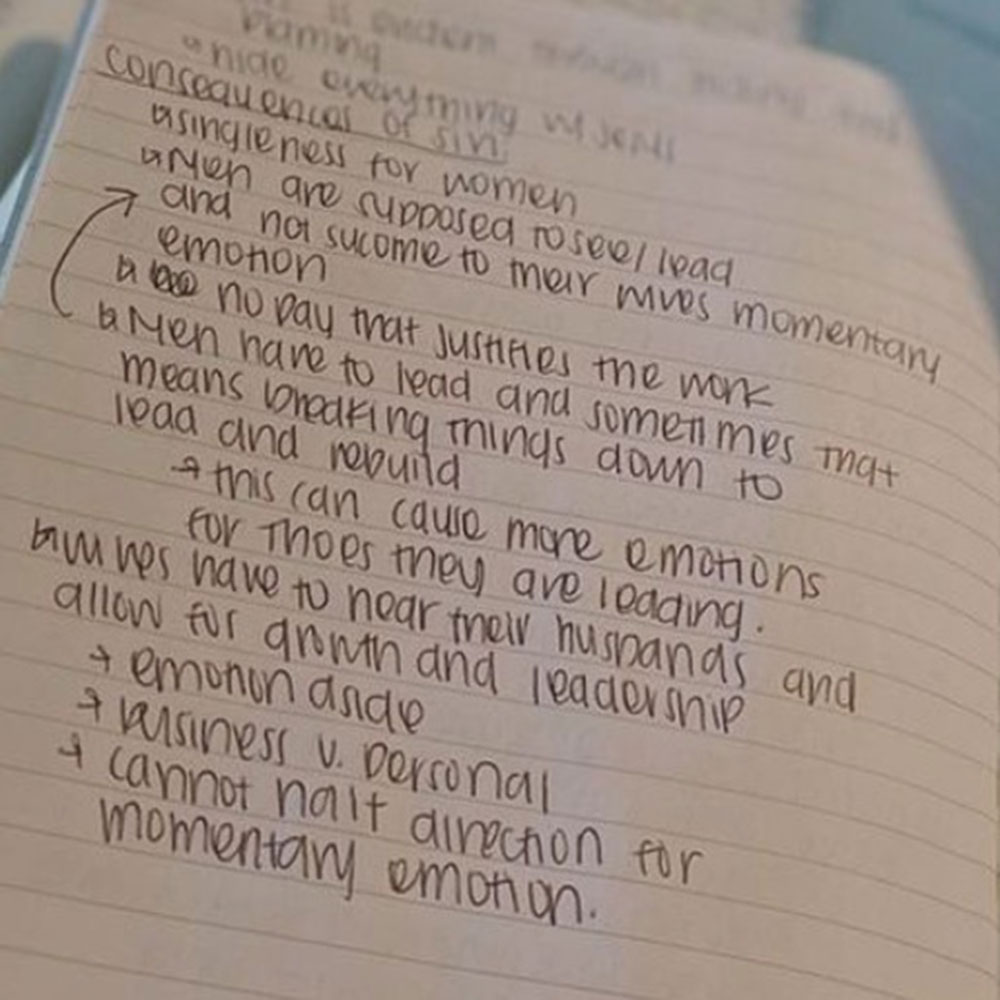 blaming
↳ hide everything
consequences of sin:
↳ singleness for women
↳ Men are supposed to see/lead
→ and not sucome to their wives momentary
emotion
↳ no pay that justifies the work
↳ Men have to lead and sometimes that
means breaking things down to
lead and rebuild
→ this can cause more emotions
for thoes they are leading.
↳ wives have to hear their husbands and
allow for growth and leadership
→ emotion aside
→ business v. personal
→ cannot halt direction for
momentary emotion.